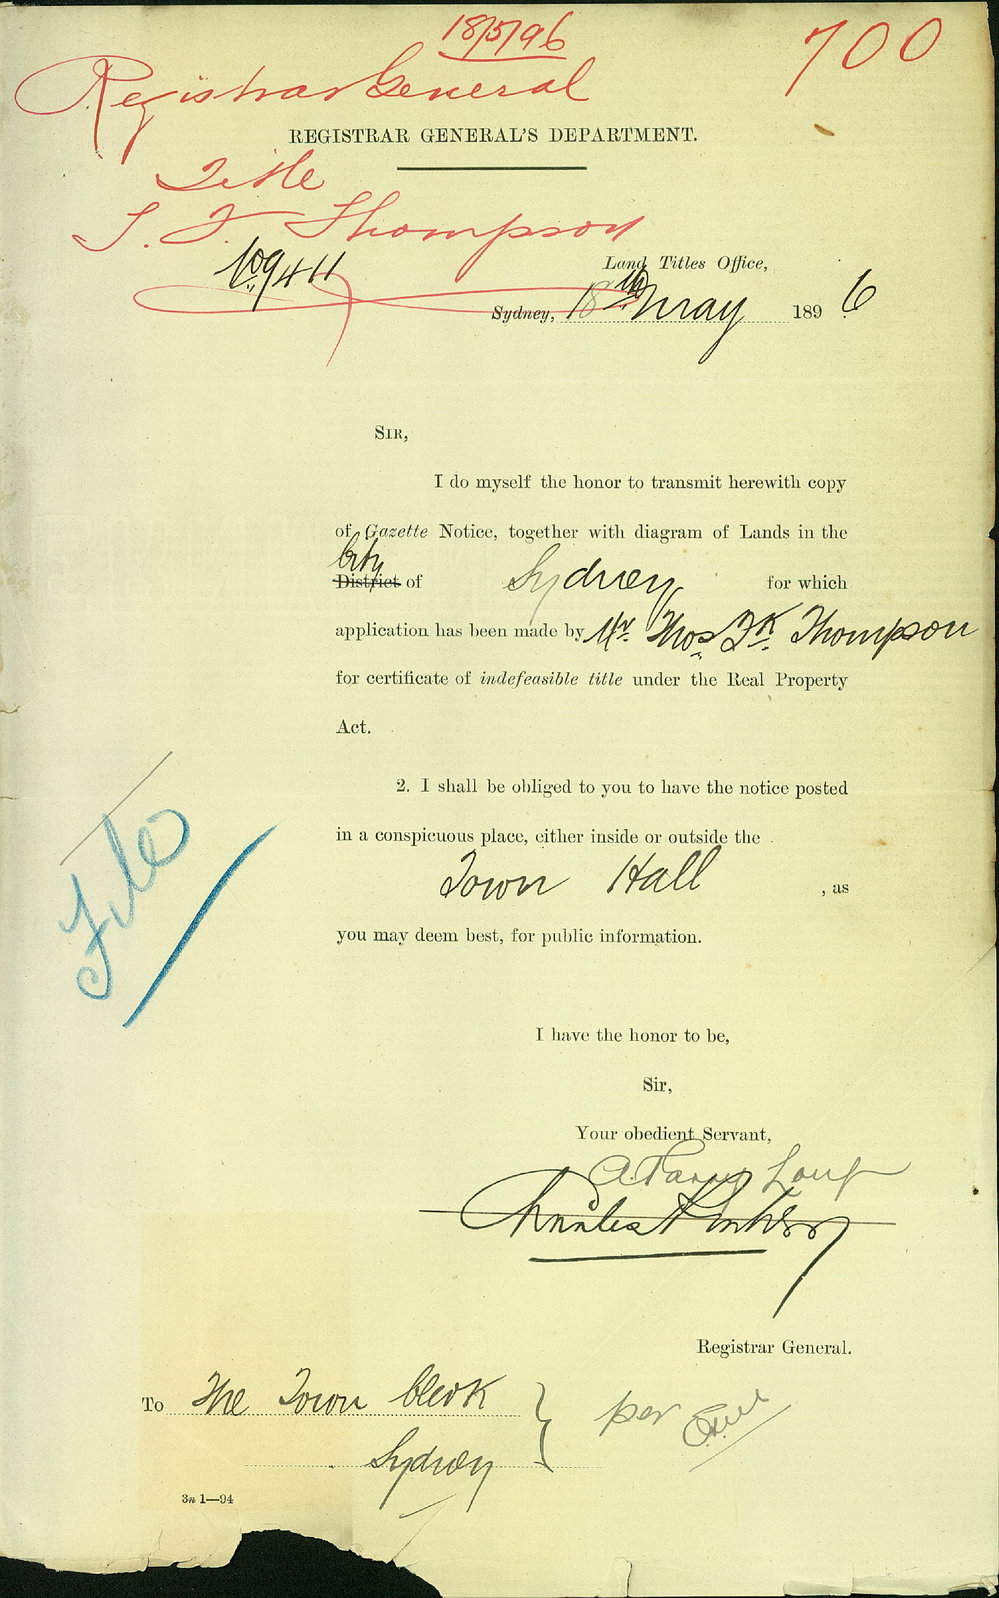 18/5/96
700
Registrar General
REGISTRAR GENERAL'S DEPARTMENT.
Title
T. F. Thompson
No 9411
Land Titles Office,
Sydney, 18th May 1896
SIR,
I do myself the honor to transmit herewith copy
of Gazette Notice, together with diagram of Lands in the
City
District of Sydney for which
application has been made by Mr. Thos Fk. Thompson
for certificate of indefeasible title under the Real Property
Act.
2. I shall be obliged to you to have the notice posted
in a conspicuous place, either inside or outside the
Town Hall , as
you may deem best, for public information.
File
I have the honor to be,
Sir,
Your obedient Servant,
Charles
Registrar General.
To The Town Clerk
Sydney
per
3n 1—94